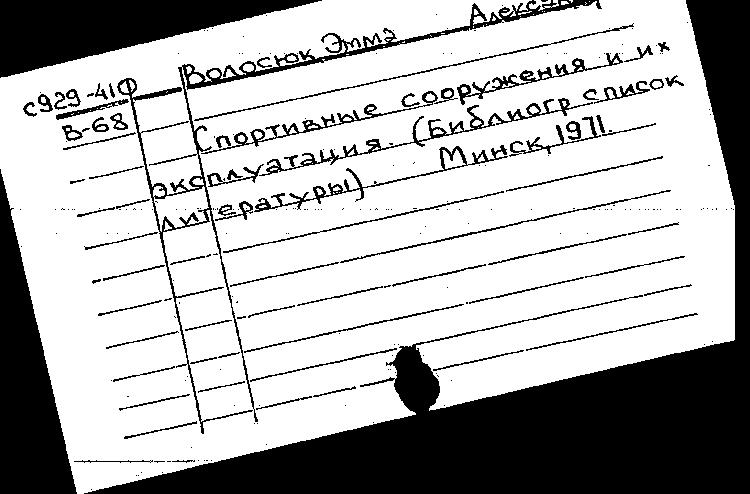 Волосюк Эмма
с929-41Ф
В-68
Спортивные сооружения и их
эксплуатация. (Библиогр список
литературы). Минск, 1971.